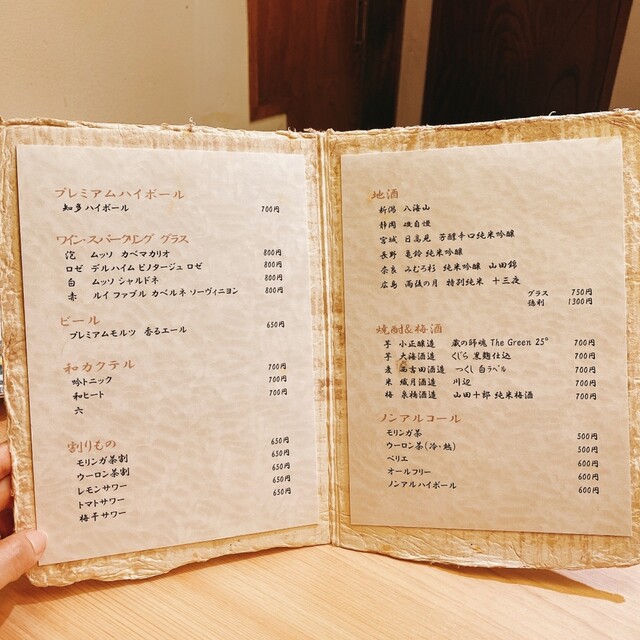 プレミアムハイボール
知多ハイボール 700円
ワイン・スパークリング グラス
泡 ムッソ カベマカリオ 800円
ロゼ デルハイム ピノタージュ ロゼ 800円
白 ムッソ シャルドネ 800円
赤 ルイ ファブル カベルネ ソーヴィニヨン 800円
ビール
プレミアムモルツ 香るエール 650円
和カクテル
吟トニック 700円
和ヒート 700円
六 700円
割りもの
モリンガ茶割 650円
ウーロン茶割 650円
レモンサワー 650円
トマトサワー 650円
梅干サワー 650円
地酒
新潟 八海山
静岡 磯自慢
宮城 日高見 芳醇辛口純米吟醸
長野 亀鈴 純米吟醸
奈良 みむろ杉 純米吟醸 山田錦
広島 雨後の月 特別純米 十三夜
グラス 750円
徳利 1300円
焼酎&梅酒
芋 小正醸造 蔵の師魂 The Green 25° 700円
芋 大海酒造 くじら 黒麹仕込 700円
麦 古田酒造 つくし 白ラベル 700円
米 繊月酒造 川辺 700円
梅 泉橋酒造 山田十郎 純米梅酒 700円
ノンアルコール
モリンガ茶 500円
ウーロン茶(冷・熱) 500円
ペリエ 600円
オールフリー 600円
ノンアルハイボール 600円